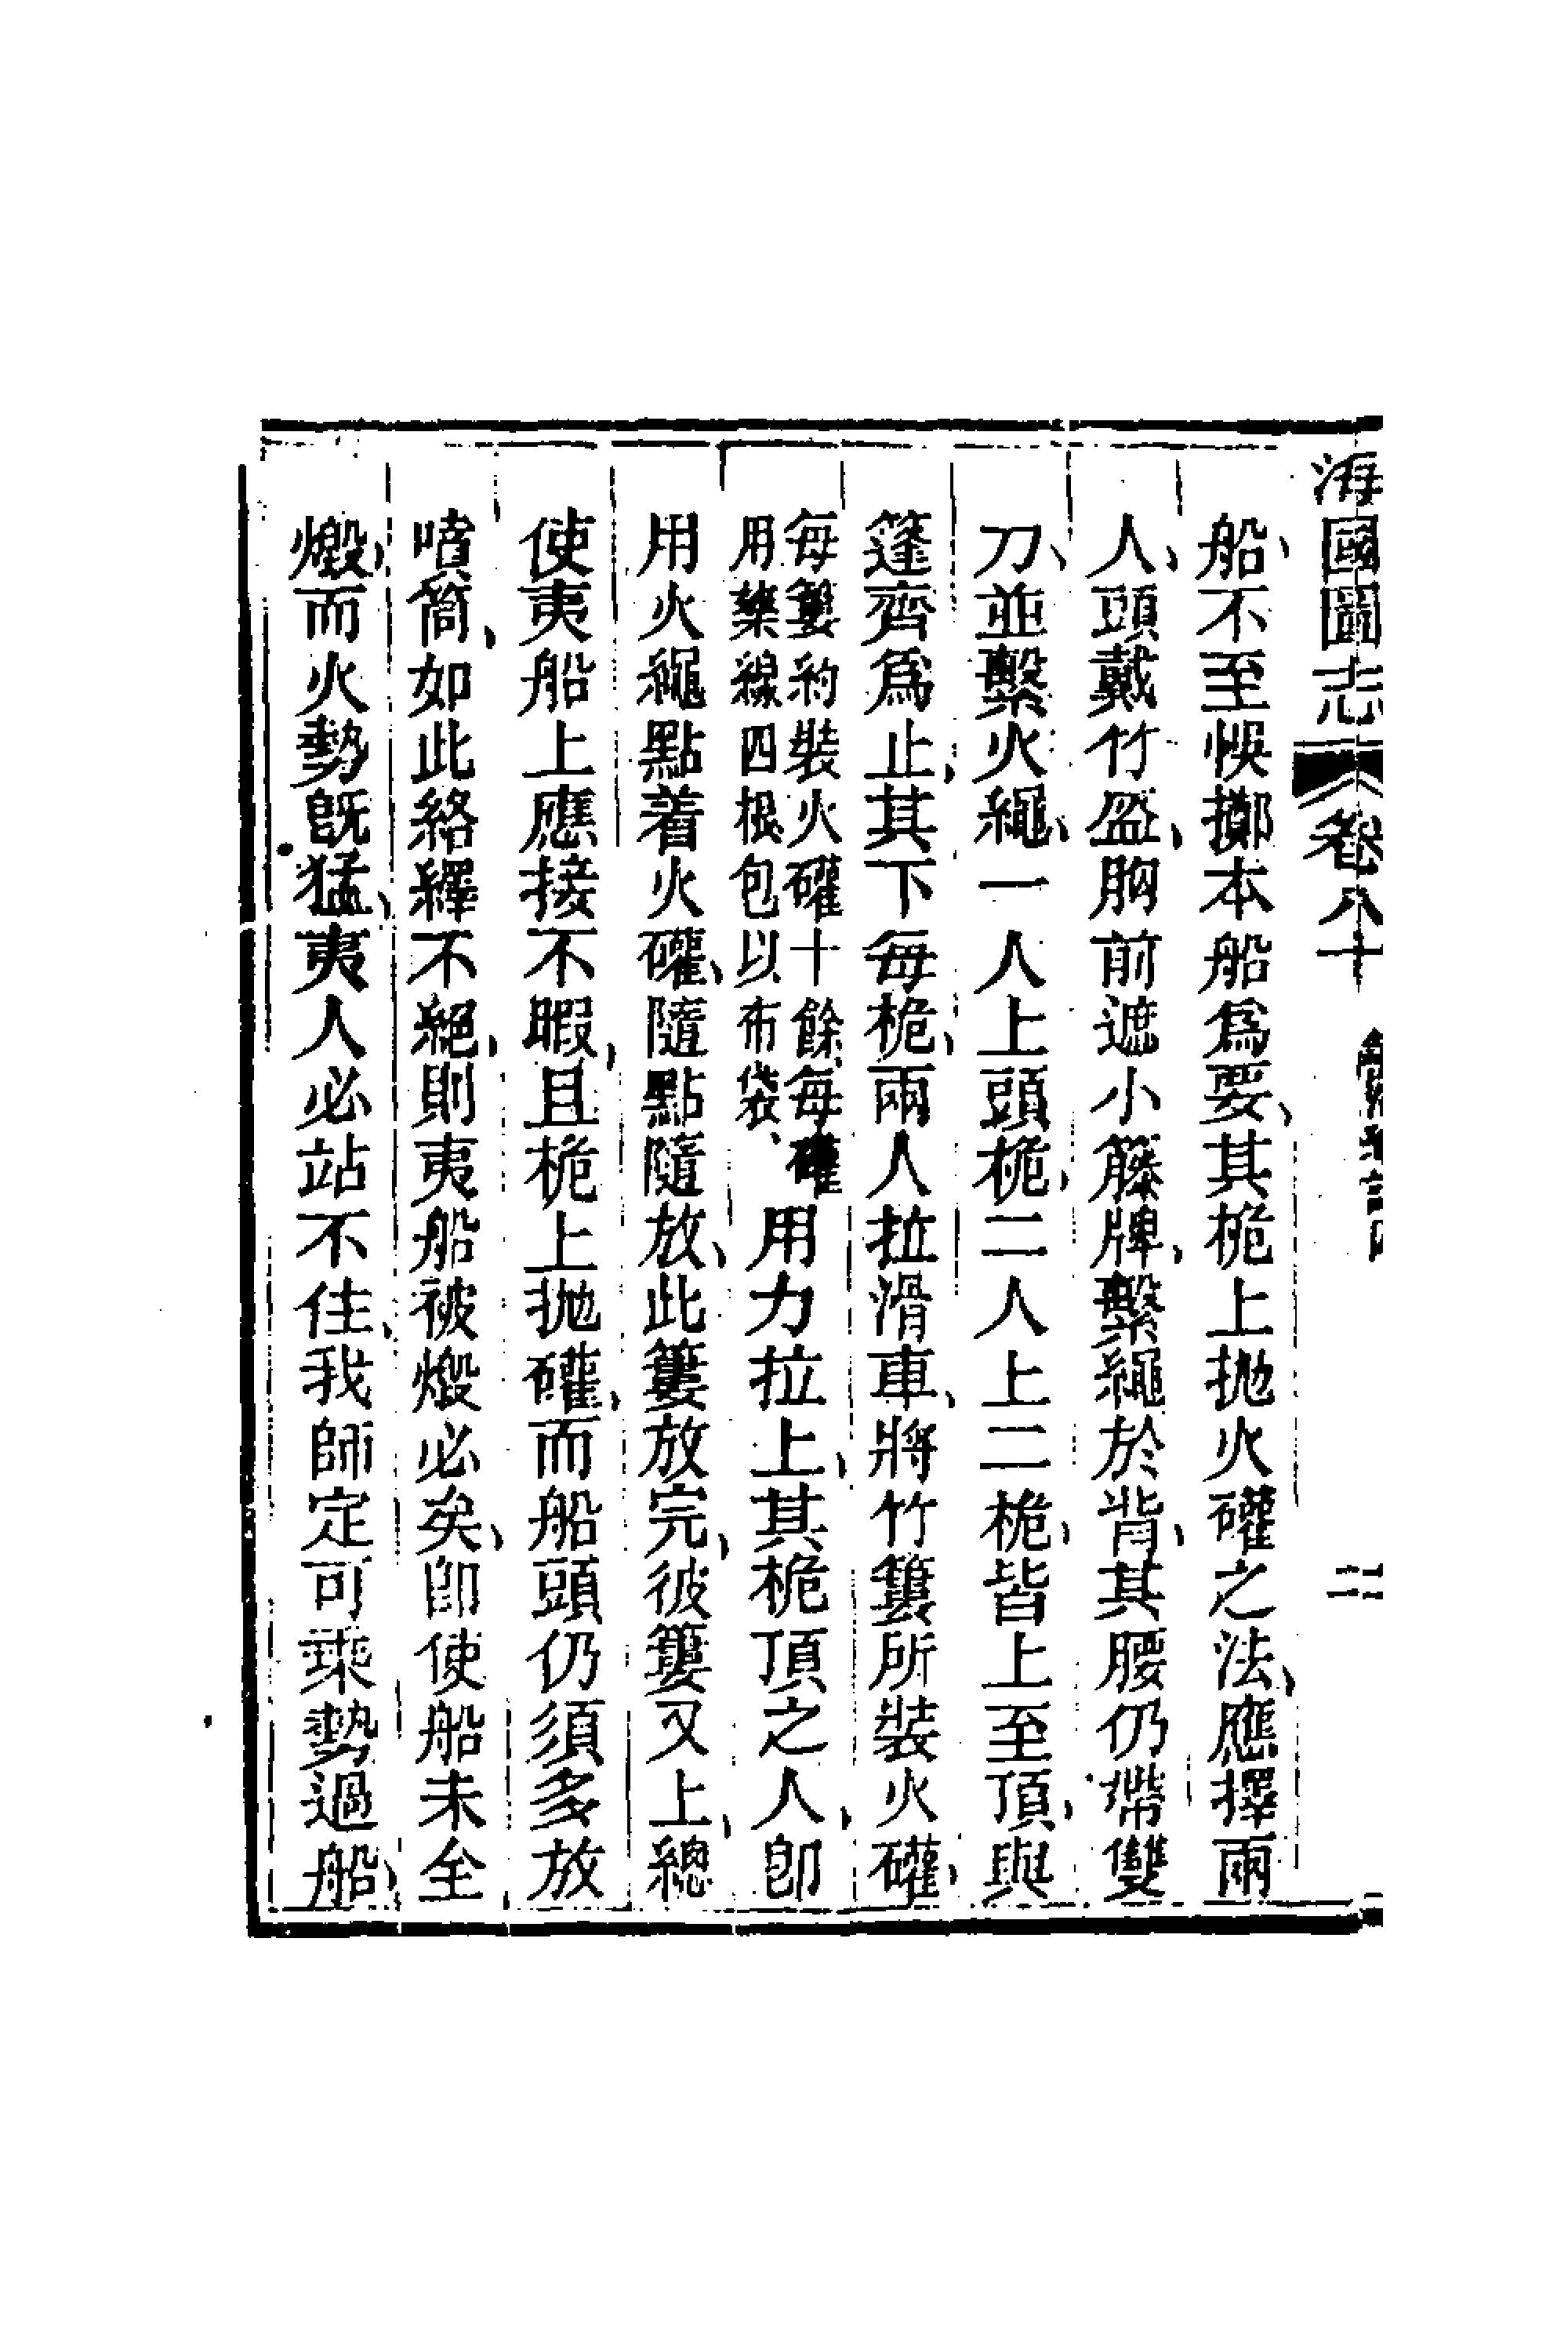 海國圖志 卷八十 二
船、不至悞擲本船爲要、其桅上拋火礶之法、應擇兩
人、頭戴竹盔、胸前遮小籐牌、繫繩於背、其腰仍帶雙
刀、並繫火繩、一人上頭桅、二人上二桅、皆上至頂、與
篷齊爲止、其下每桅、兩人拉滑車、將竹簍所裝火礶、
每簍約裝火礶十餘、每礶
用藥線四根、包以布袋、
用力拉上、其桅頂之人、卽
用火繩點着火礶、隨點隨放、此簍放完、彼簍又上、總
使夷船上應接不暇、且桅上拋礶、而船頭仍須多放
噴筒、如此絡繹不絕、則夷船被燬必矣、卽使船未全
燬、而火勢旣猛、夷人必站不住、我師定可乘勢過船、